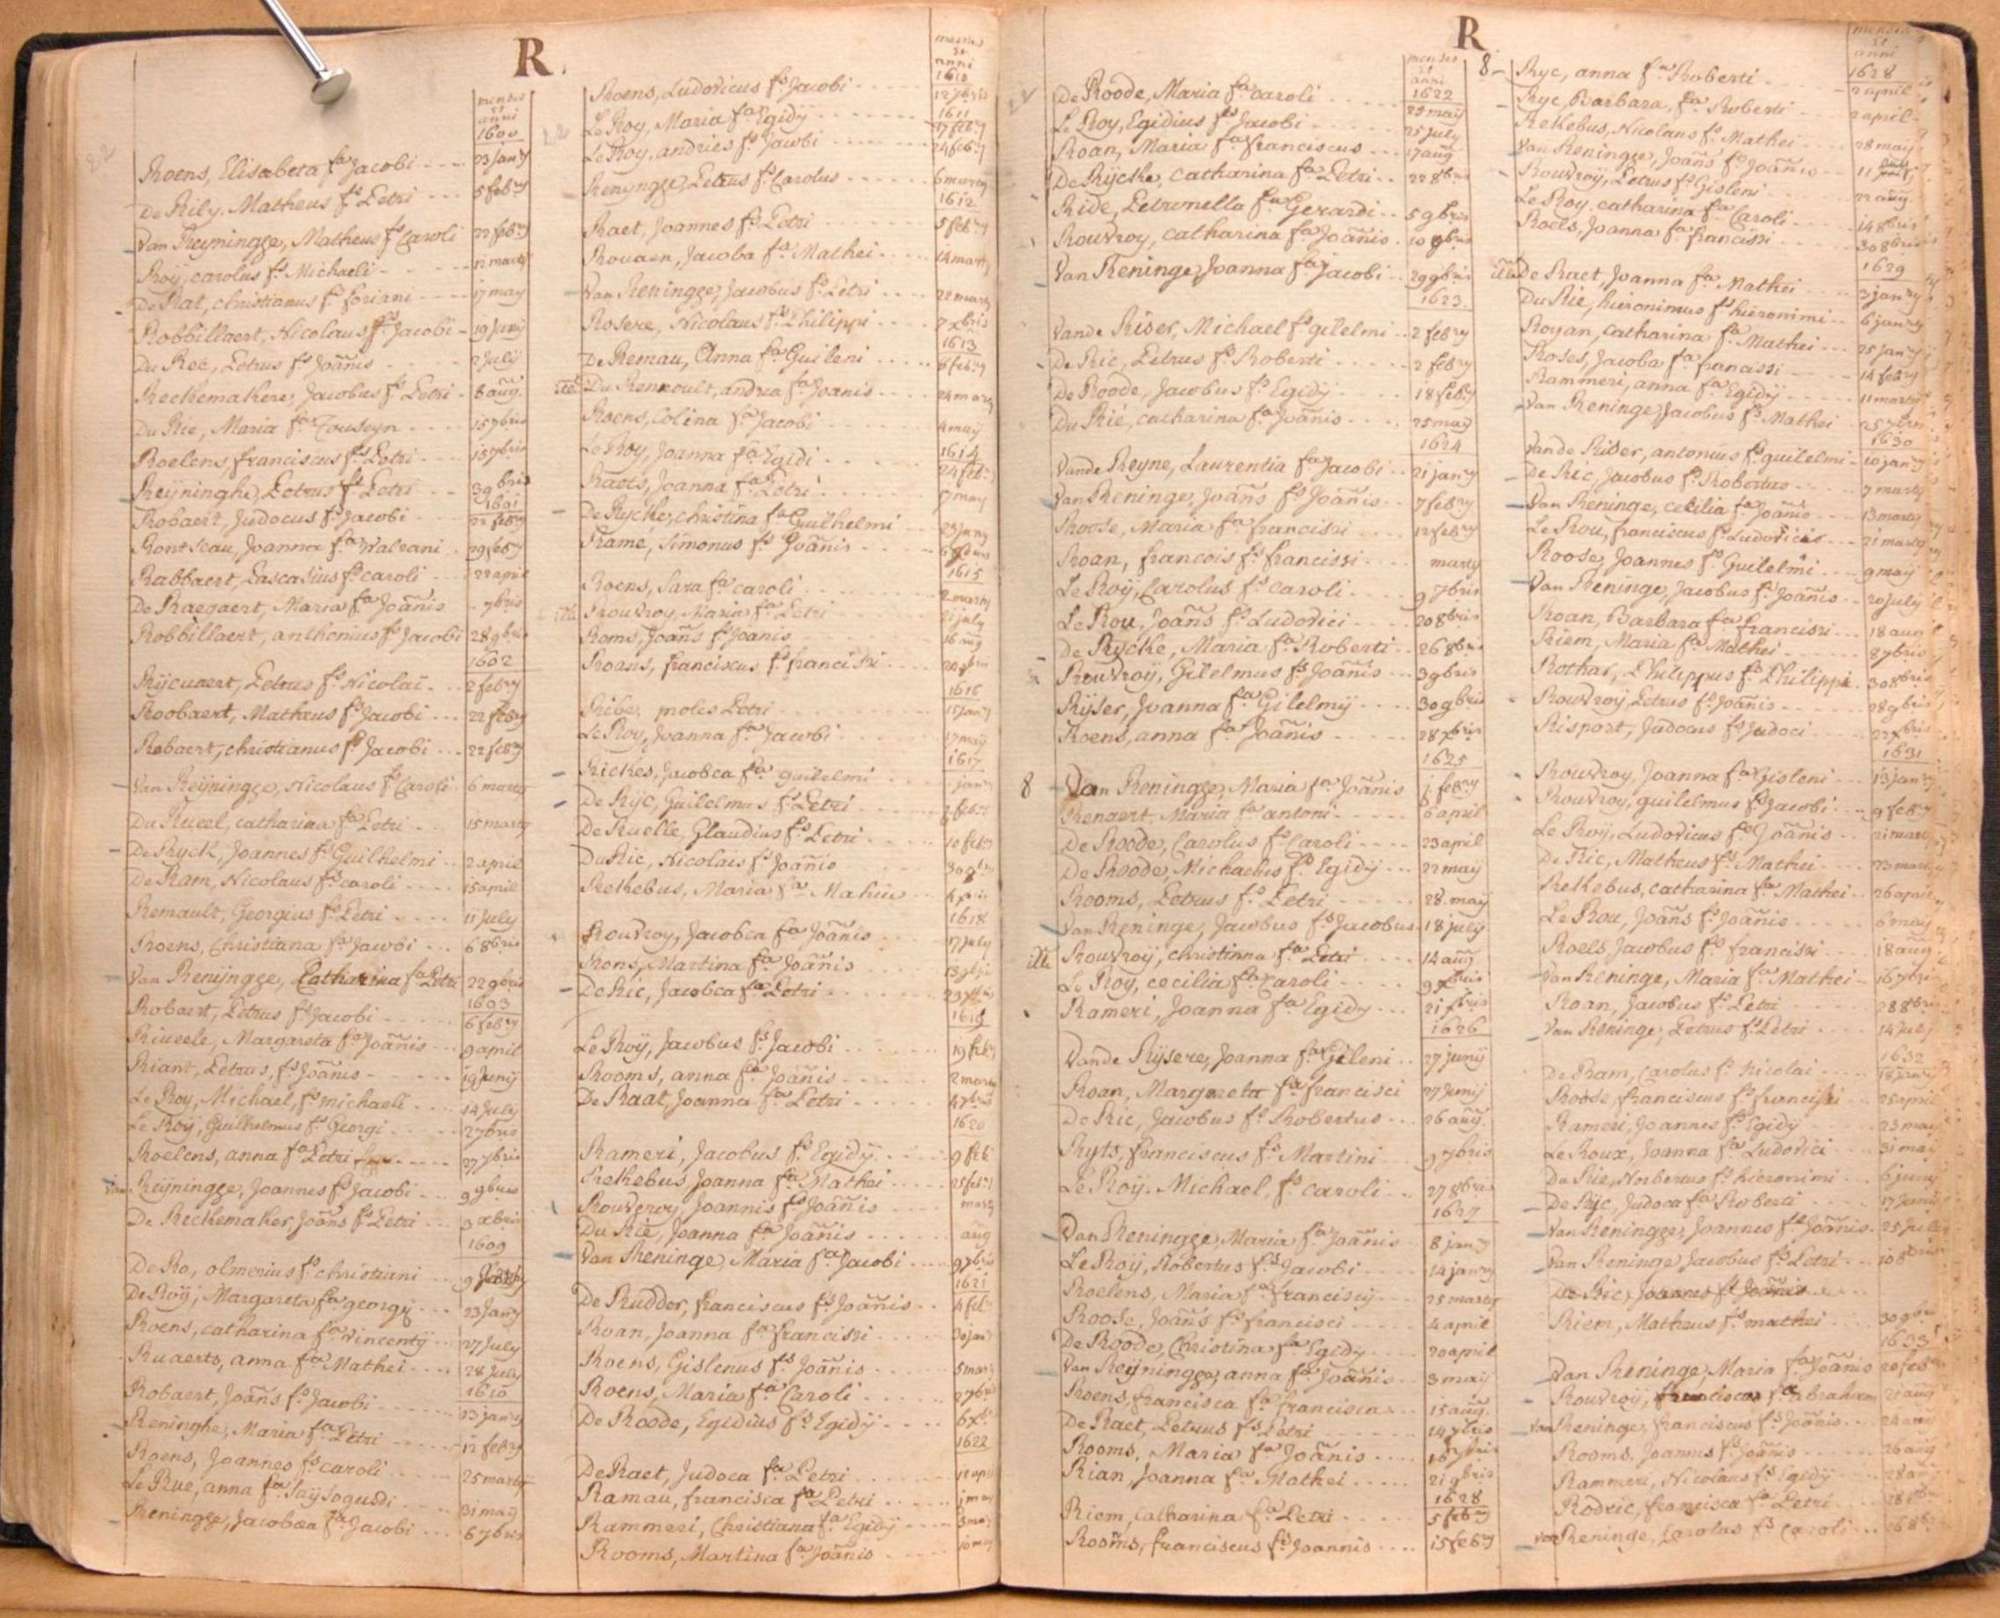 R.
menses et anni
1600
Roens, Elisabeta fa Jacobi 23 janry
De Rily. Matheus fs Petri 5 febry
Van Reyningge, Matheus fs Caroli 22 febry
Roÿ, carolus fs Michaeli 12 marty
De Rat, christianus fs 17 may
Robbillaert, Nicolaus fs Jacobi 19 Junÿ
Du Rec, Petrus fs Joãnis 2 Julÿ
Reckemakere, Jacobus fs Petri 8 aũg.
Du Rie, Maria fa 15 7bris
Roelens franciscus fs Petri 18 7bris
Reÿninghe, Petrus fs Petri 3 9bris
1601
Robaert, Judocus fs Jacobi 22 febry
Joanna fa 29 febry
Rabbaert, Pascasius fs caroli 22 april
De Raegaert, Maria fa Joãnis 7bris
Robbillaert, anthonius fs Jacobi 28 9bris
1602
Rÿcwaert, Petrus fs Nicolai 2 febry
Roobaert, Matheus fs Jacobi 22 febry
Robaert, christianus fs Jacobi 22 febry
Van Reÿningge, Nicolaus fs Caroli 6 marty
Du Rueel, catharina fa Petri 15 marty
De Ryck, Joannes fs Guilhelmi 2 april
De Ram, Nicolaus fs caroli 15 april
Remault, Georgius fs Petri 11 July
Roens, Christiana fa Jacobi 6 8bris
Van Renÿngge, Catharina fa Petri 22 9bris
1603
Robaert, Petrus fs Jacobi 6 febry
Riueele, Margareta fa Joãnis 9 april
Riant, Petrus, fs Joãnis 19 Junÿ
Le Roy, Michael, fs michaeli 14 July
Le Roÿ, Guilhelmus fs Georgi 2 7bris
Roelens, anna fa Petri 27 7bris
van Reÿningge, Joannes fs Jacobi 9 9bris
De Rickemaker, Joãns fs Petri 3 xbris
1609
De Ro, olmerius fs christiani 9
De Roÿ, Margareta fa georgÿ 23 Janry
Roens, catharina fa vincentÿ 27 July
Ruaerts, anna fa Mathei 28 July
1610
Robaert, Joãns fs Jacobi 23 janry
Reninghe, Maria fa Petri 12 febry
Roens, Joannes fs caroli 25 marty
Le Rue, anna fa 31 maÿ
Reningge, Jacobæa fa Jacobi 6 7bris
menses et anni
1610
Roens, Ludovicus fs Jacobi 12
1611
Le Roy, Maria fa Egidÿ 17 febry
Le Roy, andries fs Jacobi 24 febry
Renÿngge, Petrus fs Carolus 6 marty
1612
Raet, Joannes fs Petri 5 febry
Rouaen, Jacoba fa Mathei 14 marty
Van Reningge, Jacobus fs Petri 22 marty
Rosere, Nicolaus fs Philippi 7 xbris
1613
De Remau, Anna fa Guileni 6 febry
Du Renuoult, andrea fa Joanis 24 marty
Roens, Colina fa Jacobi 4 maÿ
1614
Le Roy, Joanna fa Egidi 24 feb
Raots, Joanna fa Petri may
De Rycke, christina fa Guilhelmi
Rame, Simonus fs Joãnis
1615
Roens, Sara fa caroli 2 marty
Rouvroy, Maria fa Petri 21 july
Roms, Joãns fs Joanis 16 aũg
Roens, franciscus fs francisci
1616
Ribe, proles Petri 15 Janry
Le Roy, Joanna fa Jacobi 17 maÿ
1617
Rickes, Jacobca fa guilelmi janry
De Rÿc, Guilelmus fs Petri 2 febry
De Ruelle, Glaudius fs Petri 10 febry
Du Ric, Nicolais fs Joãnis
Rekebus, Maria fa Mahiu
1618
Rouvroy, Jacobca fa Joãnis 17 july
Rons, Martina fa Joãnis
De Ric, Jacobca fa Petri
1619
Le Roÿ, Jacobus fs Jacobi 19 feb
Rooms, anna fa Joãnis 2 marty
De Raat, Joanna fa Petri
1620
Rameri, Jacobus fs Egidÿ 9 feb
Rekebus, Joanna fa Mathei 25 feb
Rouveroy, Joannis fs Joãnis
Du Rie, Joanna fa Joãnis aũg
Van Reninge, Maria fa Jacobi
1621
De Rudder, franciscus fs Joãnis 4 feb
Roan, Joanna fa francisci
Roens, Gislenus fs Joãnis
Roens, Maria fa Caroli
De Roode, Egidius fs Egidÿ
1622
De Raet, Judoca fa Petri
Ramau, francisca fa Petri
Rammeri, Christiana fa Egidÿ
Rooms, Martina fa Joãnis
R
menses et anni
1622
De Roode, Maria fa caroli maÿ
Le Roy, Egidius fs Jacobi 25 july
Roan, Maria fa franciscus 17 aũg
De Rÿcke, catharina fa Petri 22 8bris
Ride, Petronella fa Gerardi 5 9bris
Rouvroy, catharina fa Joãnis 10 9bris
Van Reninge, Joanna fa Jacobi 29 9bris
1623
Vande Riser, Michael fs gilelmi 2 febry
De Ric, Petrus fs Roberti 2 febry
De Roode, Jacobus fs Egidÿ 18 febry
Du Rie, catharina fa Joãnis 25 maÿ
1624
Vande Reyne, Laurentia fa Jacobi 21 janry
Van Reninge, Joãns fs Joãnis 7 febry
Roose, Maria fa francisci 12 febry
Roan, francois fs francissi marty
Le Roÿ, Carolus fs caroli 9 7bris
Le Rou, Joãns fs Ludovici 20 8bris
De Rycke, Maria fa Roberti 26 8bris
Rouvroÿ, Gilelmus fs Joãnis 3 9bris
Rÿser, Joanna fa Gilelmÿ 30 9bris
Roens, anna fa Joãnis 28 xbris
1625
8 Van Reningge, Maria fa Joãnis febry
Renaert, Maria fa antoni 6 april
De Roode, Carolus fs Caroli 23 april
De Roode, Michaelis fs Egidÿ 22 maÿ
Rooms, Petrus fs Petri 28 maÿ
Van Reninge, Jacobus fs Jacobus 18 july
Rouvroÿ, christinna fa Petri 14 aũg
Le Roy, cecilia fa Caroli 9 xbris
Rameri, Joanna fa Egidÿ
1626
Vande Rÿsere, Joanna fa Gileni 27 junÿ
Roan, Margareta fa francisci 27 Junÿ
De Ric, Jacobus fs Robertus 26 aũg.
Ryts, franciscus fs Martini 9 7bris
Le Roÿ, Michael, fs caroli 27 8bris
1627
Van Reningge, Maria fa Joãnis 8 janry
Le Roÿ, Robertus fs Jacobi 14 janry
Roelens, Maria fa franciscÿ 25 marty
Roose, Joãns fs francisci 4 april
De Roode, Christina fa Egidÿ 20 april
Van Reÿningge, anna fa Joãnis 3 maii
Roens, francisca fa francisca 15 aũg
De Raet, Petrus fs Petri 14 7bris
Rooms, Maria fa Joãnis 16
Rian, Joanna fa Mathei 21 9bris
1628
Riem, Catharina fa Petri 5 febry
Rooms, franciscus fs Joannis 15 febry
menses et anni
1628
8 Ryc, anna fa Roberti 2 april
Ryc, Barbara, fa Roberti 2 april
Rekebus, Nicolaus fs Mathei 28 maÿ
Van Reningge, Joãns fs Joãnis 11
Rouvroÿ, Petrus fs Gisleni 22 aũg
Le Roy, catharina fa Caroli 14 8bris
Roels, Joanna fa francissi 30 8bris
1629
De Raet, Joanna fa Mathei 3 janry
Du Rie, hieronimus fs hieronimi 6 janry
Royan, catharina fa Mathei 25 janry
Roses, Jacoba fa francissi 14 febry
Rammeri, anna fa Egidÿ 11 marty
Van Reninge, Jacobus fs Mathei 25 7bris
1630
Vande Rider, antonius fs guilelmi 10 janry
De Ric, Jacobus fs Robertus 7 marty
Van Reninge, cecilia fa Joãnis 13 marty
Le Rou, franciscus fs Ludovicis 21 marty
Roose, Joannes fs Guilelmi 9 maÿ
Van Reninge, Jacobus fs Joãnis 20 july
Roan, Barbara fa francisci 18 aug
Riem, Maria fa Mathei 8 7bris
Rothar, Philippus fs Philippi 30 8bris
Rouvroÿ, Petrus fs Joãnis 28 9bris
Risport, Judocus fs Judoci 22 xbris
1631
Rouvroy, Joanna fa Gisleni 13 janry
Rouvroy, guilelmus fs Jacobi 9 febry
Le Roÿ, Ludovicus fs Joãnis 21 marty
De Ric, Matheus fs Mathei 23 marty
Rekebus, catharina fa Mathei 26 april
Le Rou, Joãns fs Joãnis 6 may
Roels Jacobus fs francisci 18 aũg
Van Reninge, Maria fa Mathei 16 7bris
Roan, Jacobus fs Petri 28 8bris
Van Reninge, Petrus fs Petri 14 July
1632
De Ram, Carolus fs Nicolai 18 janry
Roose, franciscus fs francisci 25 april
Rameri, Joannes fs Egidÿ 23 may
Le Roux, Joanna fa Ludovici 31 mai
Du Rie, Norbertus fs hieronimi 6 junÿ
De Ryc, Judoca fa Roberti 17 Juni
Van Reningge, Joannes fs Joãnis 25 July
Van Reninge Jacobus fs Petri 10 8bris
De Ric, Joannes fs Joãnis
Riem, Matheus fs mathei 30 9bris
1633
Van Reninge, Maria fa Joãnis 20 feb
Rouvroÿ, fa abraham 21 aũg
Van Reninge, franciscus fs Joãnis 24 aug
Rooms, Joannis fs Joãnis 26 aũg
Rammeri, Nicolaus fs Egidÿ 28 aug
Rodric, francisca fa Petri
Van Reninge, Carolus fs Caroli